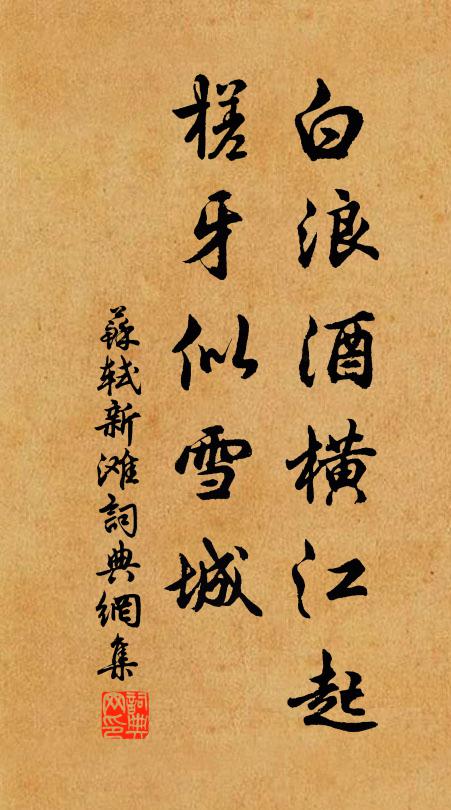 白浪酒橫江起
槎牙似雪城
蘇軾新灘詞典網集
詞典網印